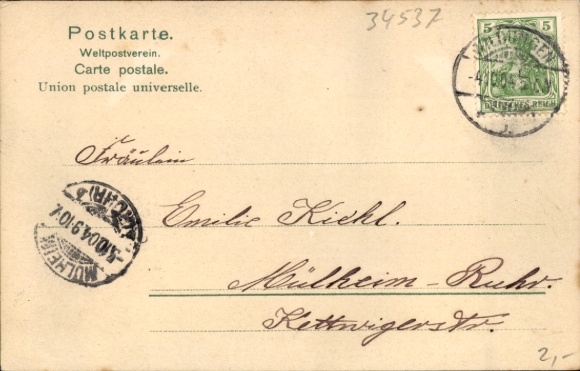 34537
Postkarte.
Weltpostverein.
Carte postale.
Union postale universelle.
5 5
DEUTSCHES REICH
Fräulein
Emilie Kiehl.
MÜLHEIM
5.10.04.9-10.V.
(RUHR)
Mülheim-Ruhr.
Kettwigerstr.
2,-